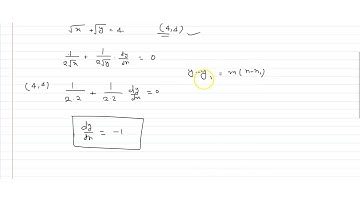 √x + √y = 4 (4,4)
1/2√x + 1/2√y · dy/dx = 0
y - y₁ = m(x-x₁)
(4,4) 1/2·2 + 1/2·2 dy/dx = 0
dy/dx = -1